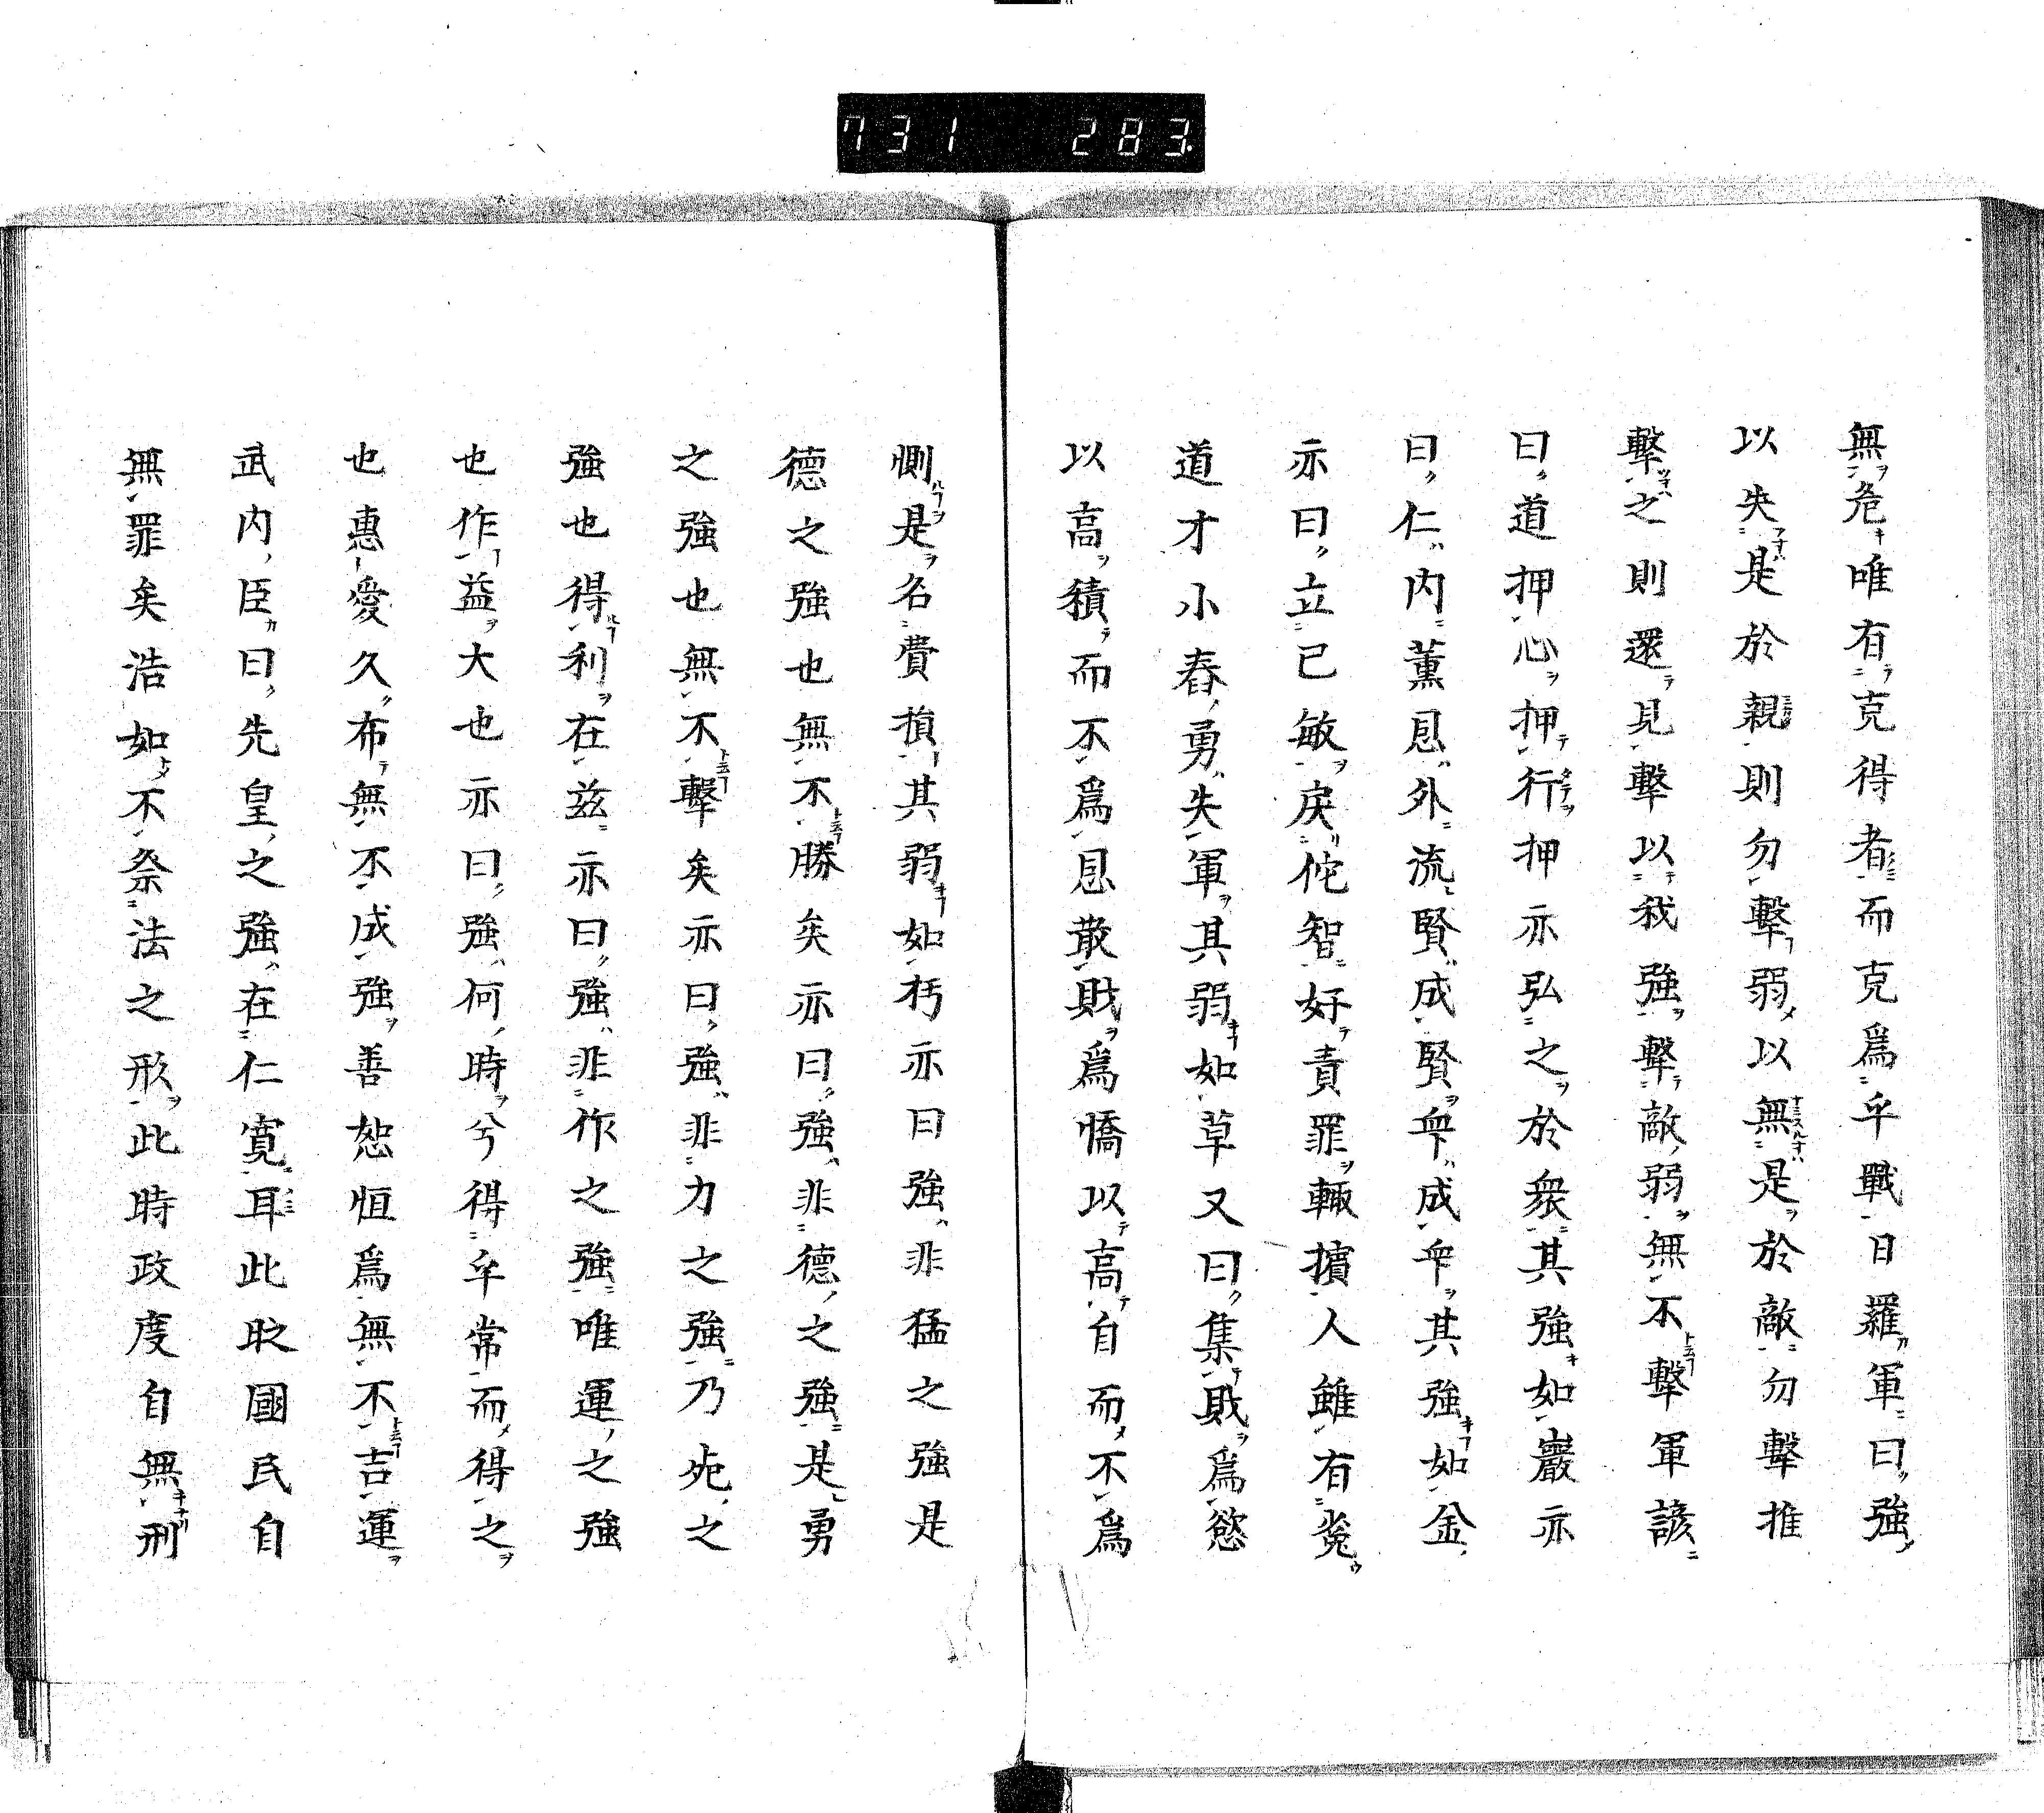 731 283
無危唯有克得者而克爲乎戰日羅軍曰強
以失是於親則勿擊弱以無是於敵勿擊推
擊之則還見擊以我強擊敵弱無不擊軍諺
曰道押心押行押亦弘之於衆其強如巖亦
曰仁內薰恩外流賢成賢卒成卒其強如金
亦曰立已敏戾佗智好責罪輙擯人雖有
道才小舂勇失軍其弱如草又曰集財爲慾
以高積而不爲恩散財爲憍以高自而不爲
惻是名費損其弱如朽亦曰強非猛之強是
德之強也無不勝矣亦曰強非德之強是勇
之強也無不擊矣亦曰強非力之強乃之
強也得利在茲亦曰強非作之強唯運之強
也作益大也亦曰強何時兮得乎常而得之
也惠愛久布無不成強善恕恒爲無不吉運
武內臣曰先皇之強在仁寛耳此時國民自
無罪矣浩如不祭法之形此時政度自無刑